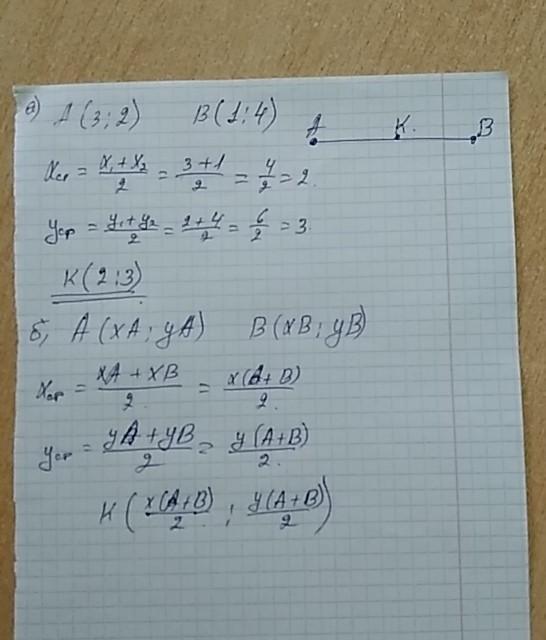 а) A (3;2) B(1;4)
A K. B
xср = x₁+x₂/2 = 3+1/2 = 4/2 = 2.
yср = y₁+y₂/2 = 2+4/2 = 6/2 = 3.
K(2;3)
б, A (xA; yA) B(xB; yB)
xср = xA+xB/2. = x(A+B)/2.
yср = yA+yB/2 = y(A+B)/2.
K (x(A+B)/2 ; y(A+B)/2)